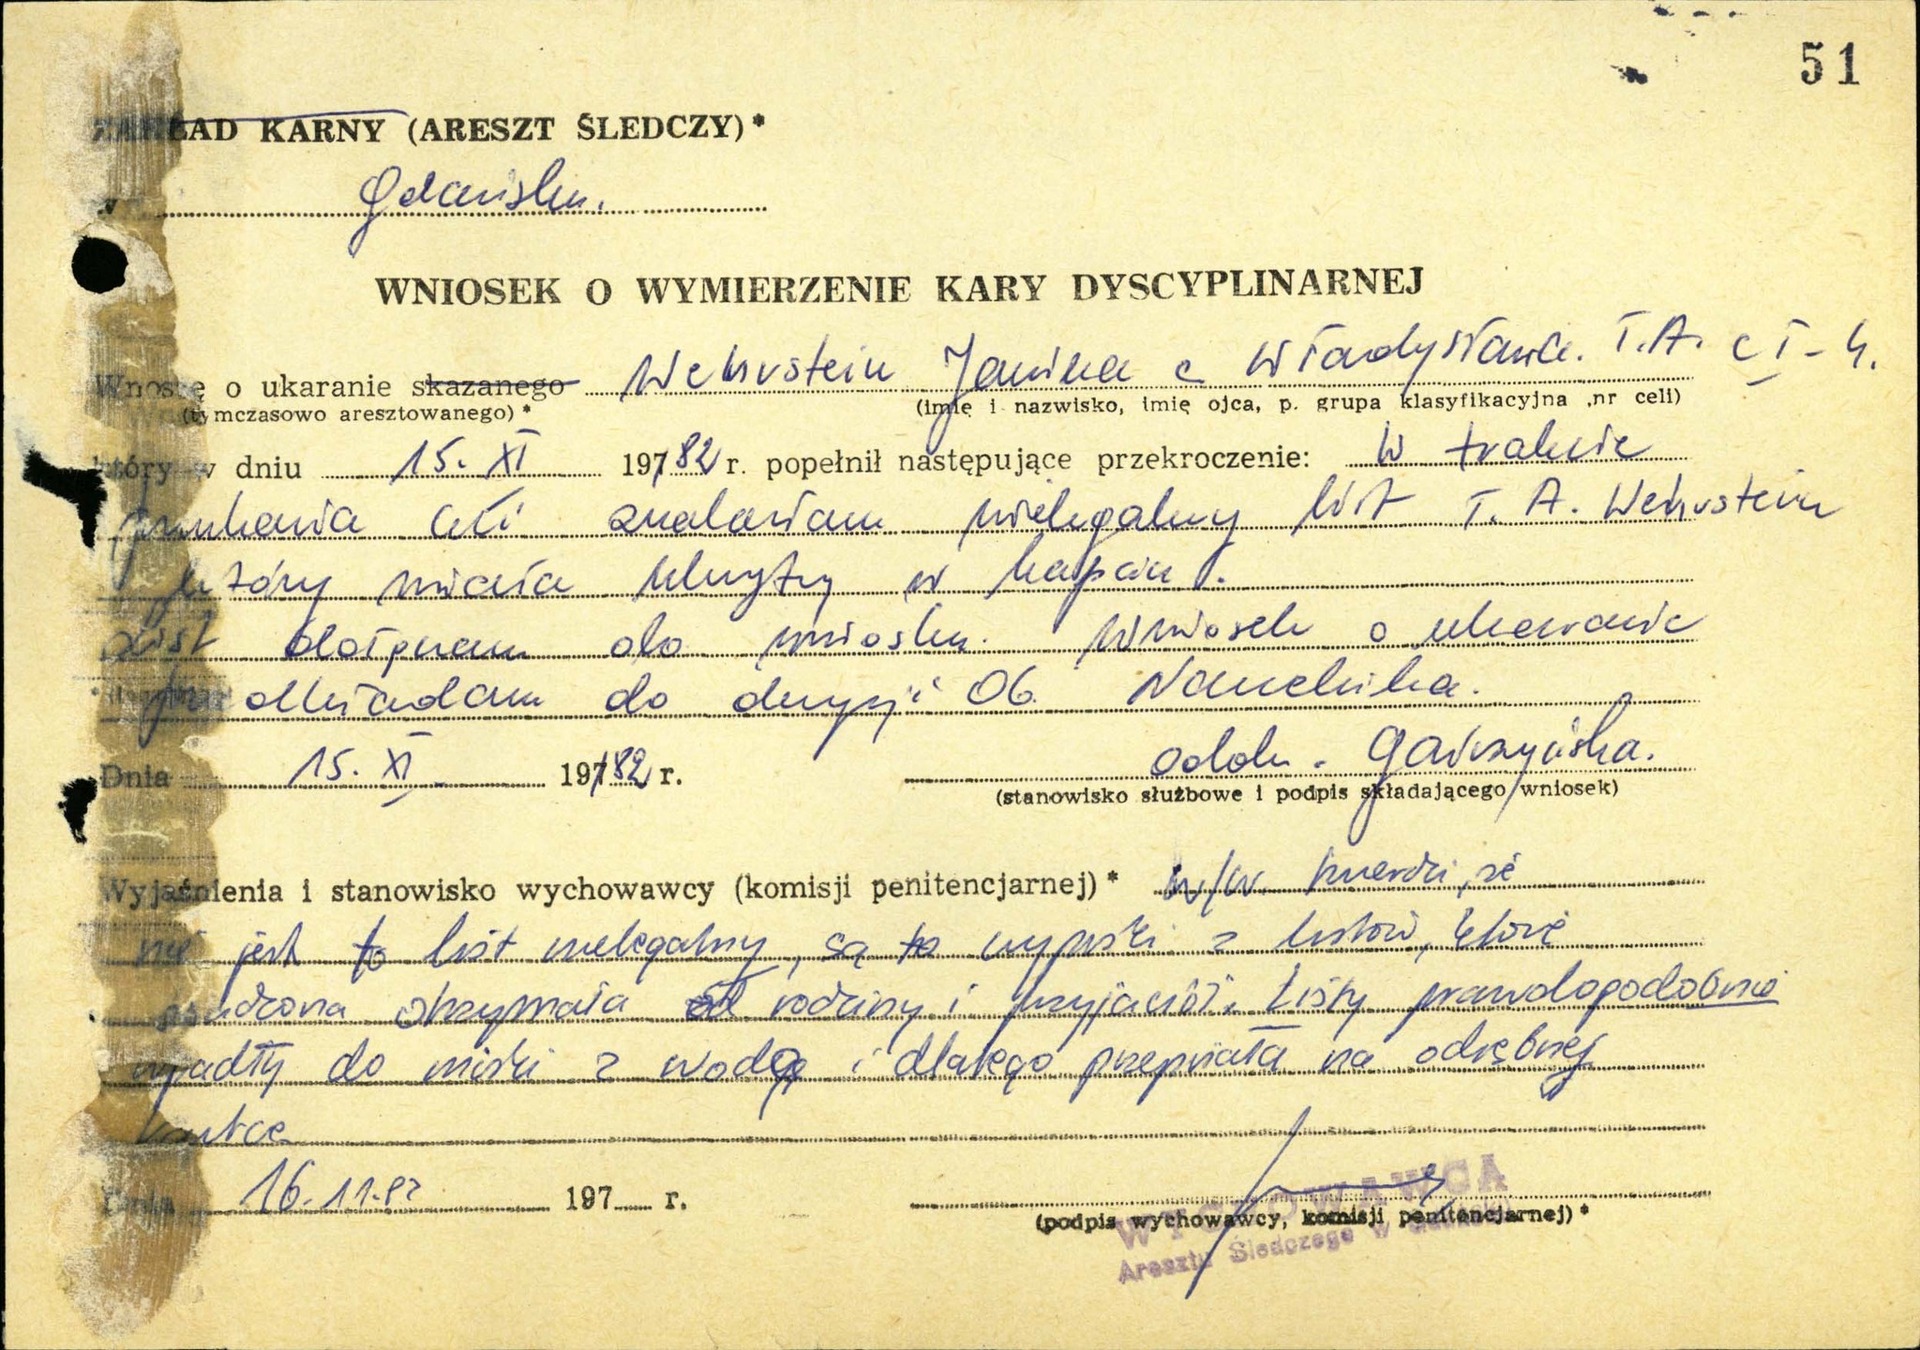 51
ZAKŁAD KARNY (ARESZT ŚLEDCZY)*
w Gdańsku.
WNIOSEK O WYMIERZENIE KARY DYSCYPLINARNEJ
Wnoszę o ukaranie skazanego Wehrstein Janina c Władysława. T.A. c I-4.
(tymczasowo aresztowanego)* (imię i nazwisko, imię ojca, p. grupa klasyfikacyjna ,nr celi)
który w dniu 15. XI 197/82 r. popełnił następujące przekroczenie: W trakcie
celi znalazłam nielegalny list T. A. Wehrstein
który miała ukryty w kapciu.
List dołączam do wniosku. Wniosek o ukaranie
do decyzji Ob. Naczelnika.
Dnia 15. XI 197/82 r. oddz. Garczyńska.
(stanowisko służbowe i podpis składającego wniosek)
Wyjaśnienia i stanowisko wychowawcy (komisji penitencjarnej)* w/w twierdzi, że
nie jest to list nielegalny, są to wypiski z listów, które
osadzona otrzymała od rodziny i przyjaciół. Listy prawdopodobnie
wpadły do miski z wodą i dlatego przepisała na odrębnej
kartce
Dnia 16.11.82 197 r.
(podpis wychowawcy, komisji penitencjarnej)*
WYCHOWAWCA
Aresztu Śledczego w